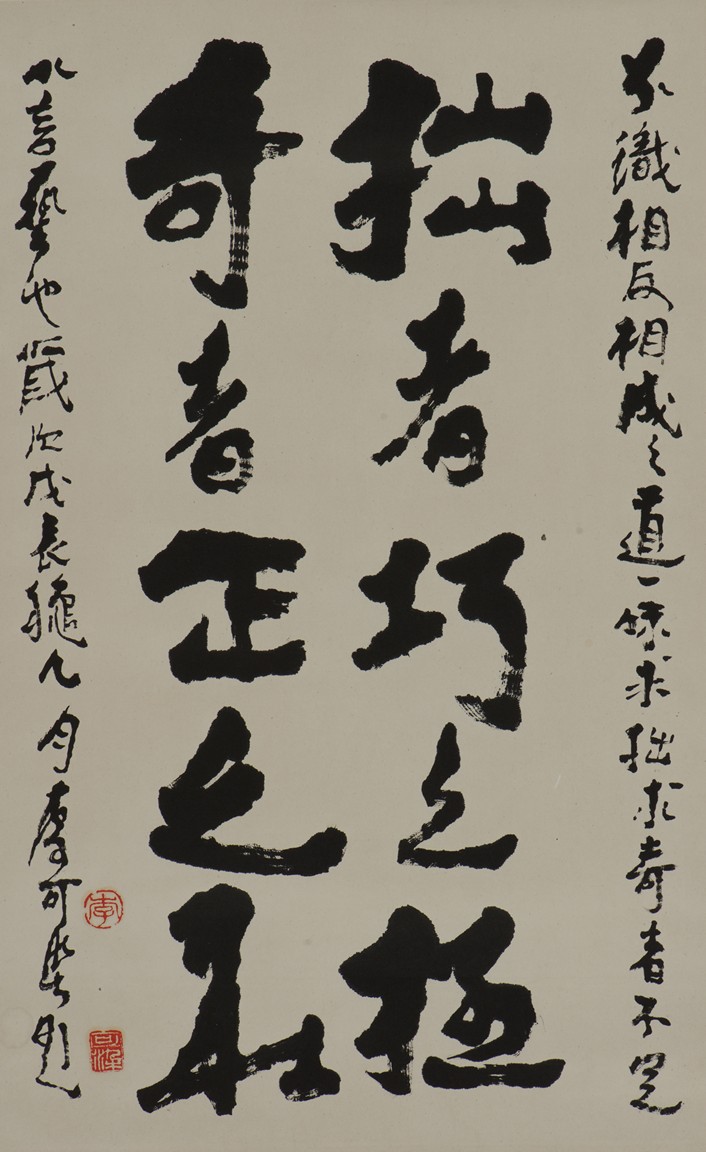 不識相反相成之道一味求拙求奇者不足
拙者巧之極
奇者正之
以言藝也歲次戊辰龝九月李可染題
李
可染